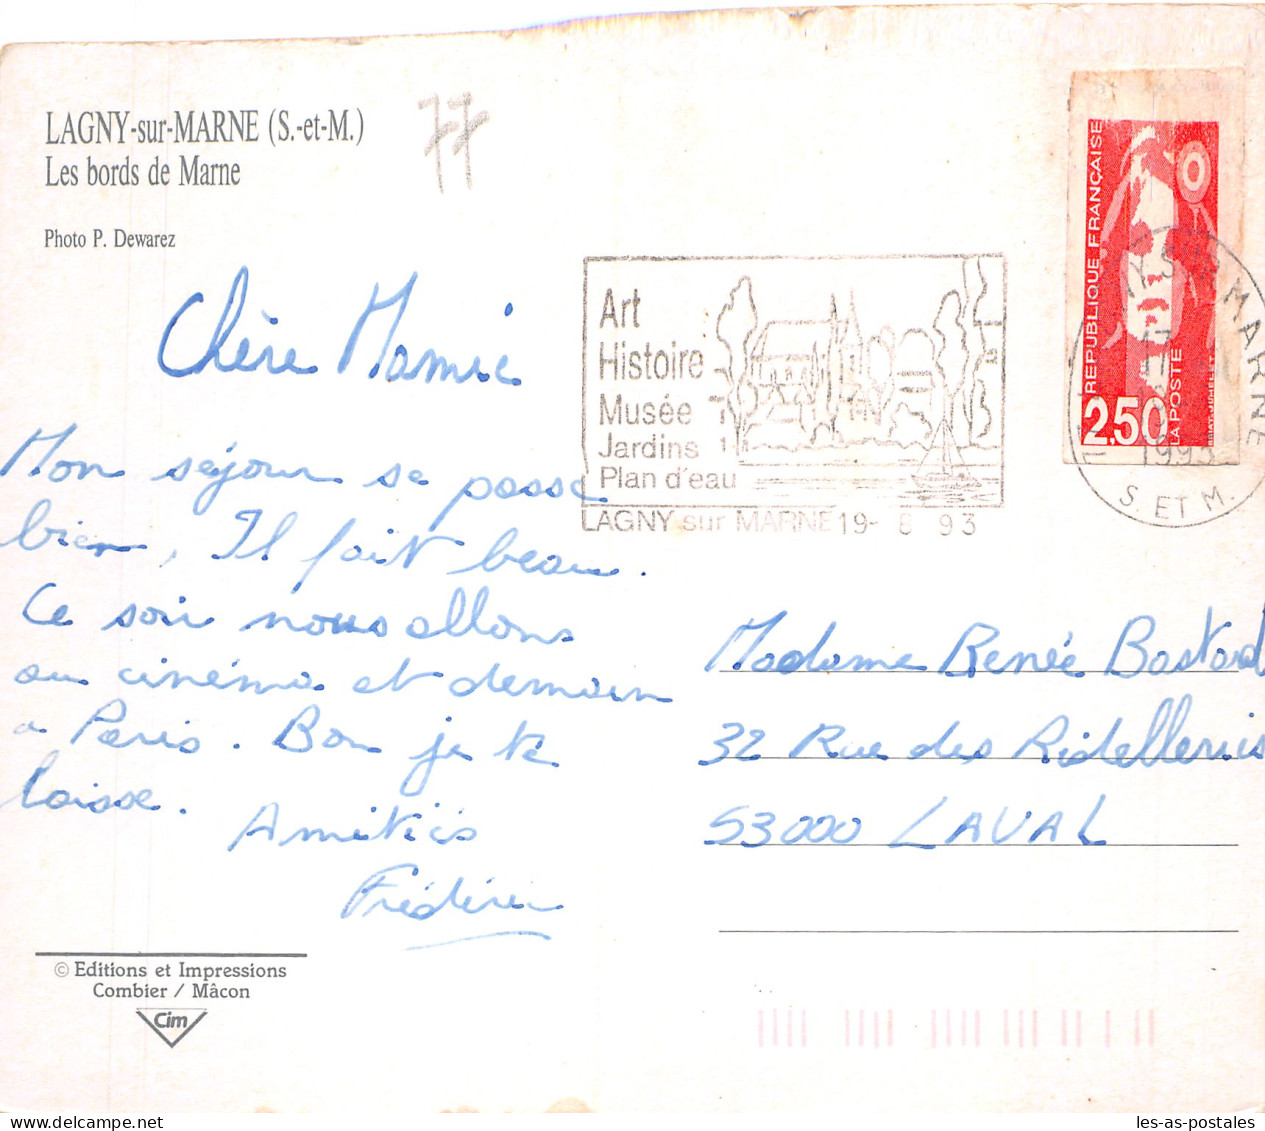 LAGNY-sur-MARNE (S.-et-M.)
Les bords de Marne
Photo P. Dewarez
77
Chère Mamie
Mon séjour se passe
bien, Il fait beau.
Ce soir nous allons
au cinéma et demain
a Paris. Bon je te
laisse.
Amitiés
Frédéric
© Editions et Impressions
Combier / Mâcon
Cim
Art
Histoire
Musée
Jardins
Plan d'eau
LAGNY sur MARNE 19- 8 93
REPUBLIQUE FRANÇAISE
2,50
LA POSTE
MARNE
17
1993
S. ET M.
Madame Renée Bastard
32 Rue des Ridelleries
53000 LAVAL
les-as-postales